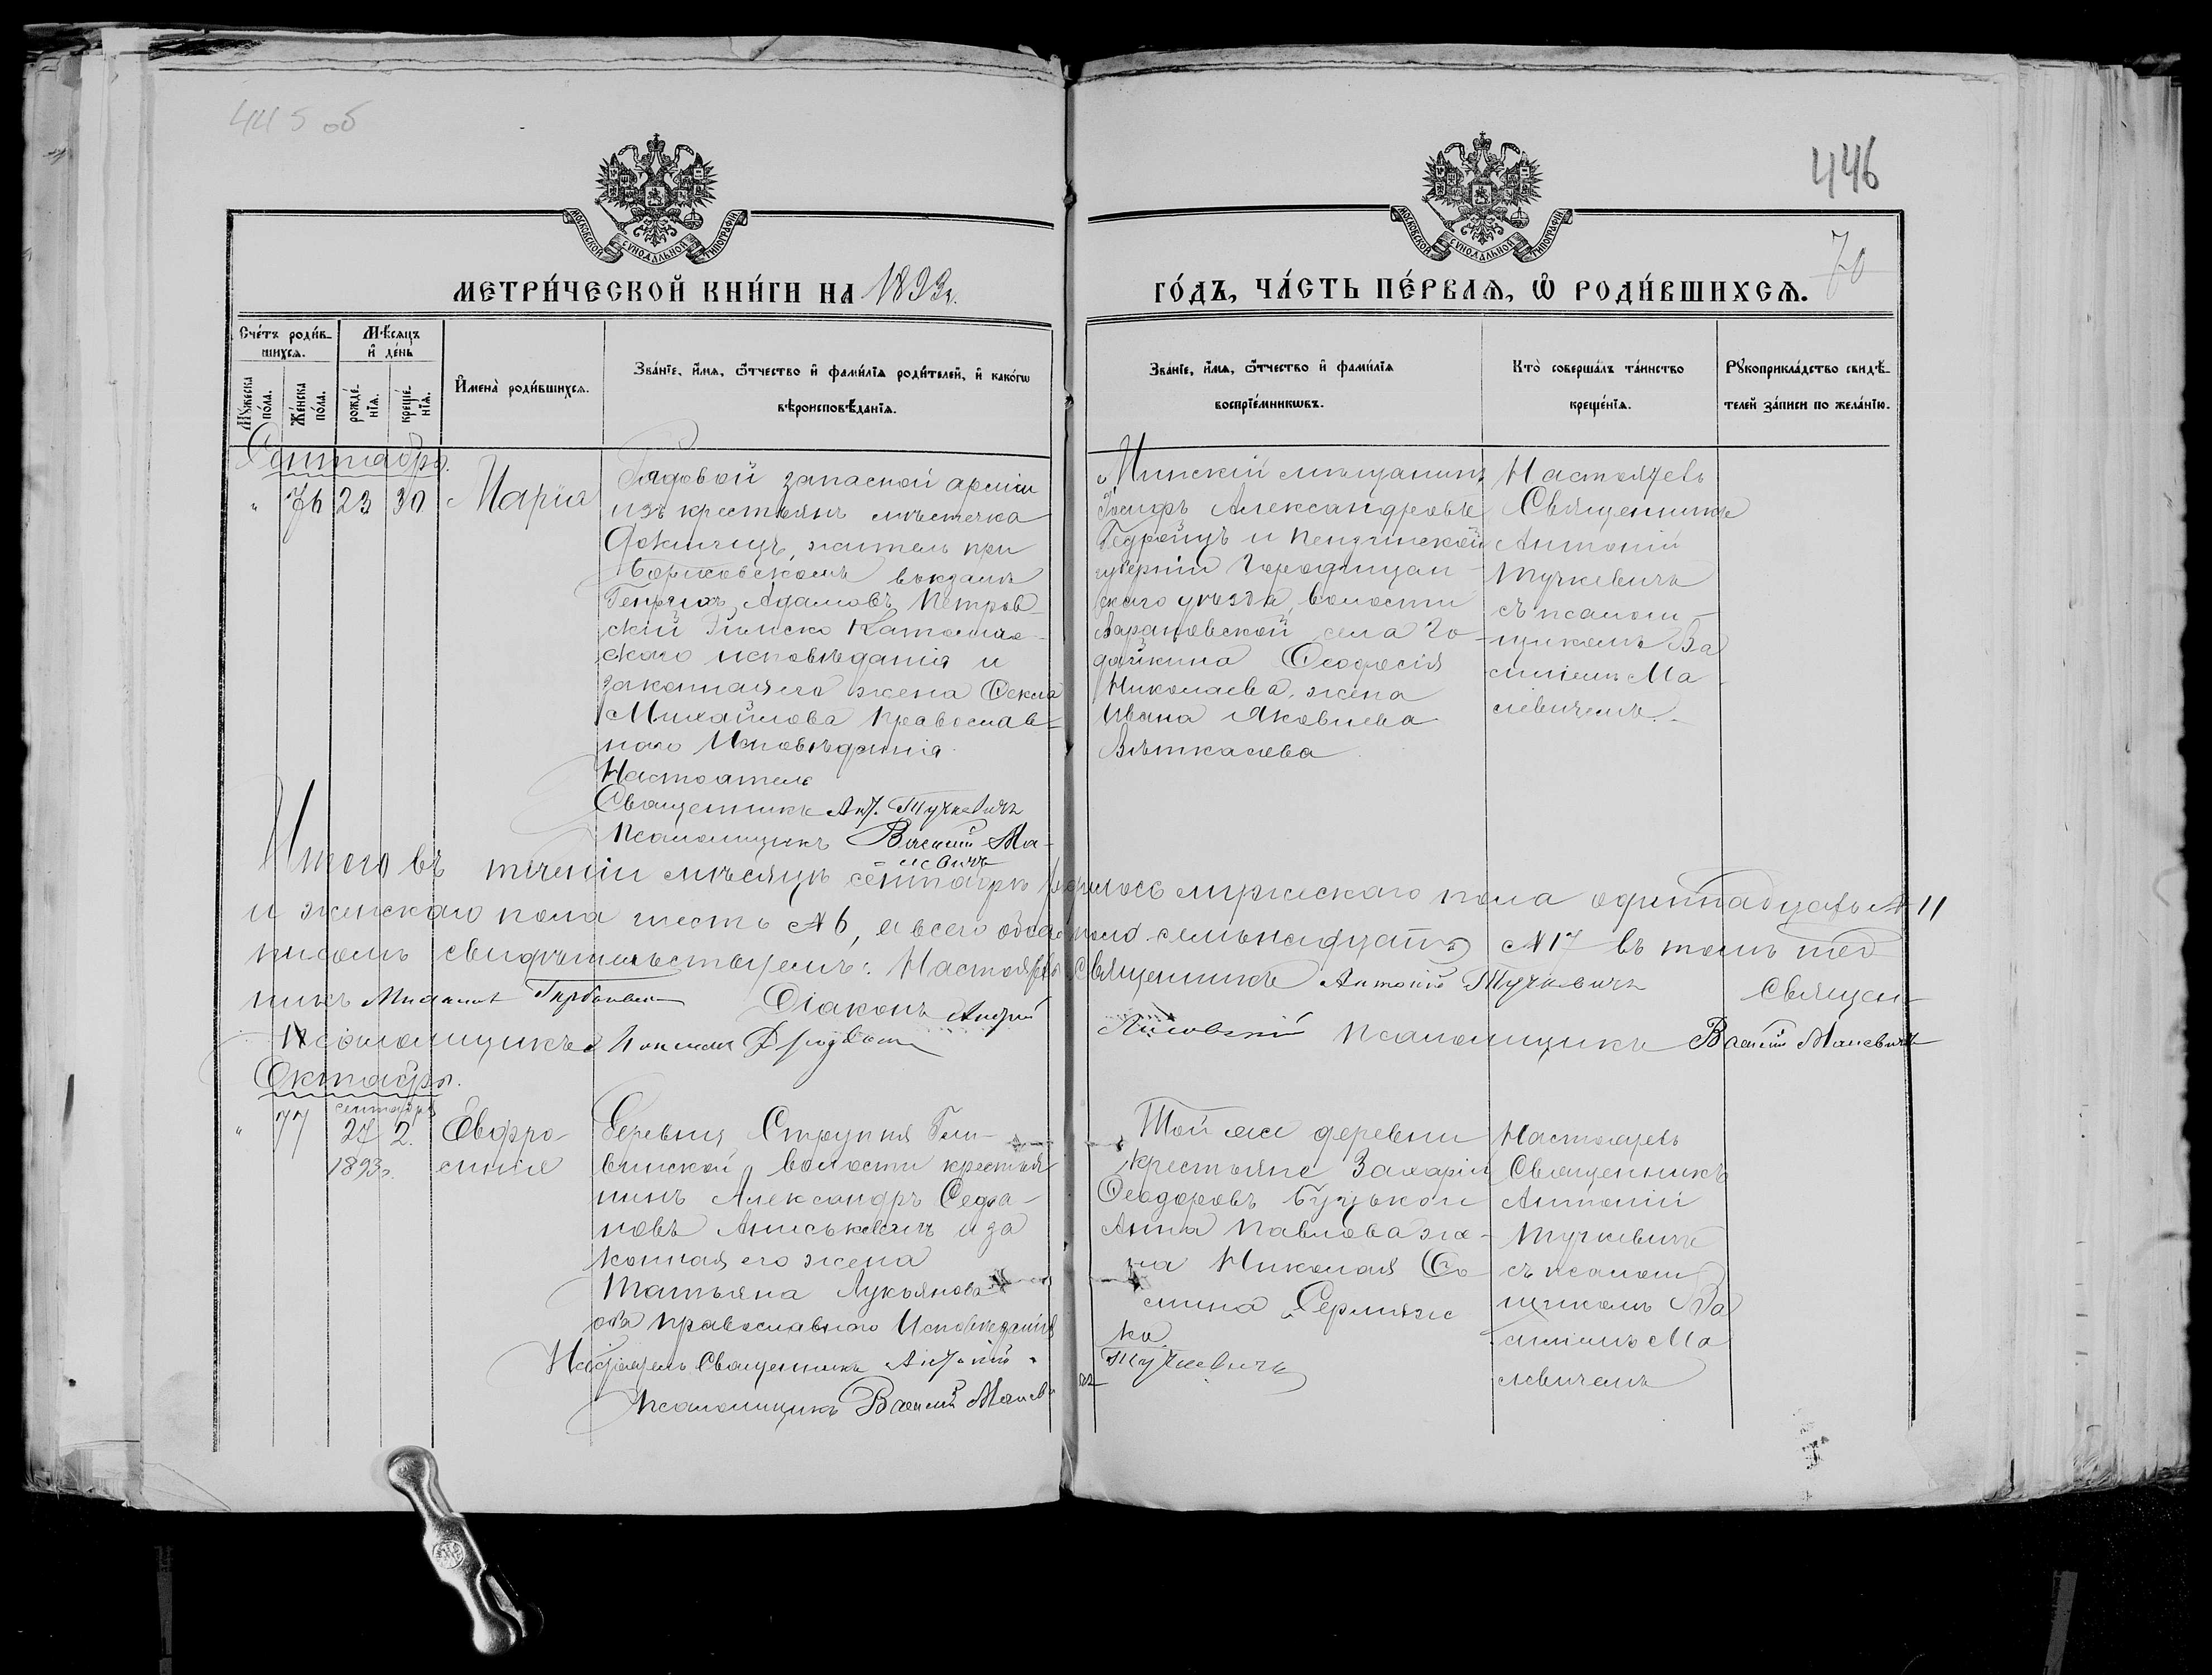 445 об
446
70
МОСКОВСКОЙ СУНОДАЛЬНОЙ ТИПОГРАФІИ
МОСКОВСКОЙ СУНОДАЛЬНОЙ ТИПОГРАФІИ
МЕТРИ́ЧЕСКОЙ КНИ́ГИ НА 1893 г.
ГО́ДЪ, ЧА́СТЬ ПЕ́РВАѦ, Ѽ РОДИ́ВШИХСѦ.
Сче́тъ роди́в-
шихсѧ.
Мѣ́сяцъ
и҆ де́нь
Мꙋ́жеска
по́ла.
Же́нска
по́ла.
рожде́-
нїѧ.
креще́-
нїѧ.
И҆мена̀ роди́вшихсѧ.
Зва́нїе, и҆́мѧ, ѻ҆́тчество и҆ фами́лїѧ роди́телей, и҆ како́гѡ
вѣроисповѣ́данїѧ.
Зва́нїе, и҆́мѧ, ѻ҆́тчество и҆ фами́лїѧ
воспрїе́мникѡвъ.
Кто̀ соверша́лъ та́инство
креще́нїѧ.
Рꙋкоприкла́дство свидѣ́-
телей за́писи по жела́нїю.
Сентябрь.
" 76 23 30 Марія
Рядовой запасной арміи
изъ крестьянъ мѣстечка
Докшицъ, житель при
Борисовскомъ вокзалѣ
Адамовъ Петров-
скій Римско Католиче-
скаго исповѣданія и
законная его жена Ѳекла
Михайлова Православ-
наго Исповѣданія.
Настоятель
Священникъ Ант. Тучкевичъ
Псаломщикъ Василій Ма-
левичъ
Минскій мѣщанинъ
Іосифъ Александровъ
Гедройцъ и Пензинской
губерніи Городищен-
скаго уѣзда, волости
села
Ѳеодосія
Николаева, жена
Ивана Яковлева
Настоятель
Священникъ
Антоній
Тучкевичъ
съ псалом-
щикомъ Ва
силіемъ Ма
левичемъ.
Итого въ теченіи мѣсяца сентября родилось мужескаго пола одиннадцать № 11
и женскаго пола шесть № 6, а всего обоего пола семьнадцать № 17 въ томъ под
писомъ свидѣтельствуемъ: Настоятель Священникъ Антоній Тучкевичъ Священ-
никъ Діаконъ Андрей
Псаломщикъ Псаломщикъ Василій Малевичъ
Октябрь.
" 77 сентября
27 2.
1893 г.
Евфро-
синія
Деревни Ступня
волости крестья
нинъ Александръ
новъ и за
конная его жена
Татьяна Лукьянова
оба православнаго Исповѣданія
Настоятель Священникъ Антоній
Тучкевичъ
Псаломщикъ Василій Малеви
чъ
Той же деревни
крестьяне Захарій
Ѳеодоровъ и
Анна Павлова же-
на Николая
ка
Настоятель
Священникъ
Антоній
Тучкевичъ
съ псалом
щикомъ Ва
силіемъ Ма
левичемъ